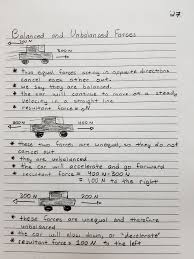 27
Balanced and Unbalanced Forces
300 N 300 N
* Two equal forces acting in opposite directions
cancel each other out.
* we say they are balanced.
* the car will continue to move at a steady
velocity in a straight line
* resultant force = 0N
* these two forces are unequal, so they do not
cancel out.
* they are unbalanced
* the car will accelerate and go forward
* resultant force = 400N - 300N
= 100N to the right
300N 200 N
* these forces are unequal and therefore
unbalanced.
* the car will slow down, or "decelerate"
* resultant force 100 N to the left